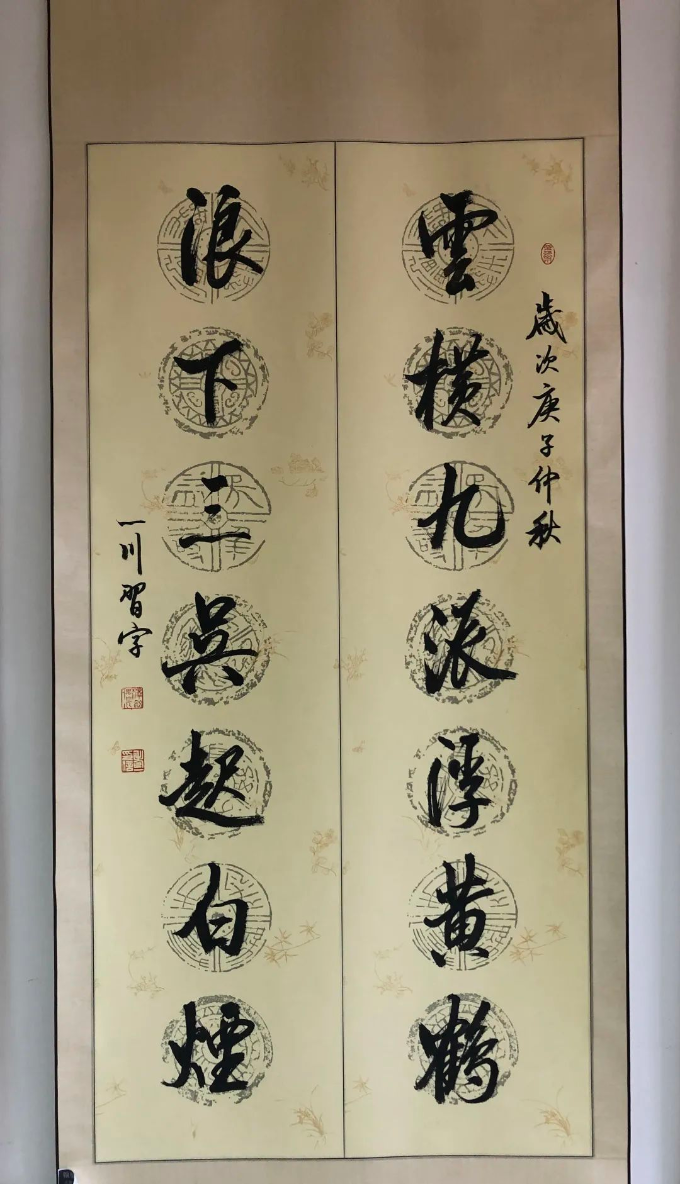 歲次庚子仲秋
雲橫九派浮黃鶴
浪下三吴起白煙
一川習字